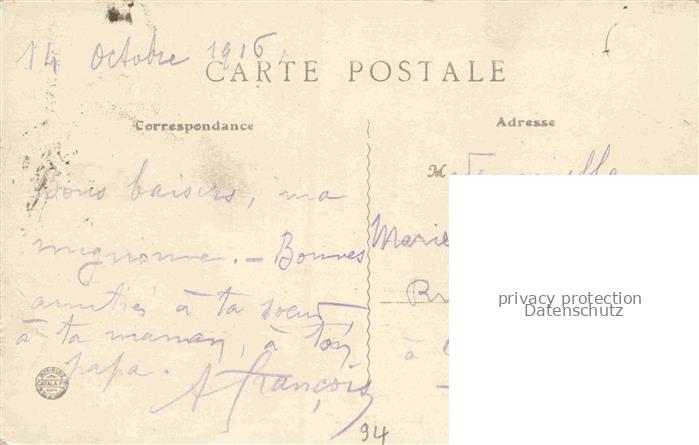 14 Octobre 1916.
CARTE POSTALE
Correspondance
Adresse
Bons baisers, ma
mignonne. – Bonnes
amitiés à ta soeur,
à ta maman, à ton
papa.
A François
M
Marie
Br
à
privacy protection
Datenschutz
CATALA
94